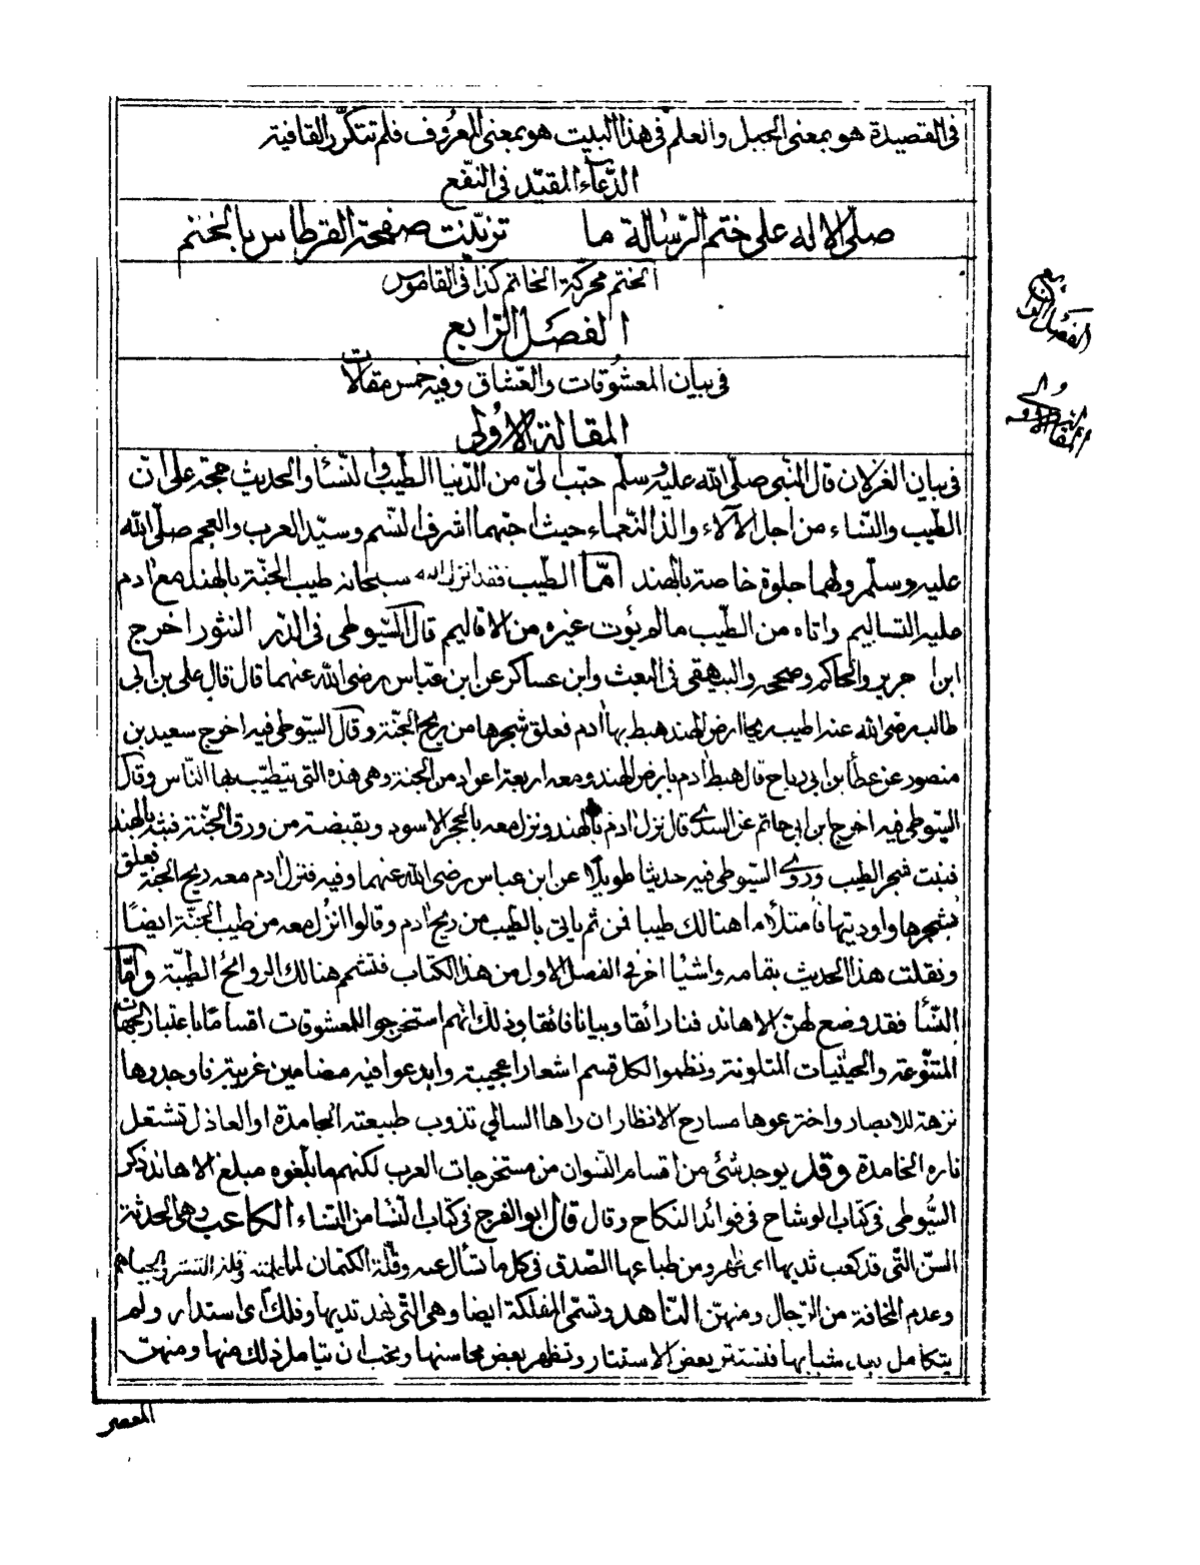 في القصيدة هو بمعنى الجبل والعلم في هذا البيت هو بمعنى المعروف فلم تتكرر القافية
الدعاء المقيد في النفع
صلى الاله على ختم الرسالة ما تزينت صفحة القرطاس بالختم
الختم محركة الخاتم كذا في القاموس
الفصل الرابع
في بيان المعشوقات والعشاق وفيه خمس مقالات
المقالة الاولى
في بيان الغزلان قال النبي صلى الله عليه وسلم حبب الى من الدنيا الطيب والنساء والحديث حجة على ان
الطيب والنساء من اجل الآلاء والذ النعماء حيث احبهما اشرف النسم وسيد العرب والعجم صلى الله
عليه وسلم ولهما جلوة خاصة بالهند اما الطيب فقد انزل الله سبحانه طيب الجنة بالهند مع ادم
عليه التساليم واتاه من الطيب ما لم يؤت غيره من الاقاليم قال السيوطي في الدر النثور اخرج
ابن جرير والحاكم وصححه والبيهقى في البعث وابن عساكر عن ابن عباس رضى الله عنهما قال قال على بن ابى
طالب رضى الله عنه اطيب ريحا ارض الهند هبط بها ادم فعلق شجرها من ريح الجنة وقال السيوطي فيه اخرج سعيد بن
منصور عن عطا بن ابى رباح قال هبط ادم بارض الهند ومعه اربعة اعواد من الجنة وهى هذه التى يتطيب بها الناس وقال
السيوطي فيه اخرج ابن ابى حاتم عن السدى قال نزل ادم بالهند ونزل معه بالحجر الاسود وبقبضة من ورق الجنة فبثه بالهند
فنبت شجر الطيب وروى السيوطي فيه حديثا طويلا عن ابن عباس رضى الله عنهما وفيه فنزل ادم معه ريح الجنة فعلق
بشجرها واوديتها فامتلأ ما هنالك طيبا فمن ثم ياتى بالطيب من ريح ادم وقالوا انزل معه من طيب الجنة ايضا
ونقلت هذا الحديث بتمامه واشيا اخر في الفصل الاول من هذا الكتاب فتشم هنالك الروائح الطيبة واما
النسأ فقد وضع لهن الاهاند فنا رائقا وبيانا فائقا وذلك انهم استخرجوا للمعشوقات اقساما باعتبار الجهات
المتنوعة والحيثيات المتلونة ونظموا لكل قسم اشعارا عجيبة وابدعوا فيه مضامين غريبة فاوجدوها
نزهة للابصار واخترعوها مسارح الانظار ان راها السالي تذوب طبيعته الجامدة او العاذل تشتعل
ناره الخامدة وقد يوجد شئ من اقسام النسوان من مستخرجات العرب لكنهم ما بلغوه مبلغ الاهاند ذكر
السيوطي في كتاب الوشاح في فوائد النكاح وقال قال ابو الفرج في كتاب النسا من النساء الكاعب وهى الحدثة
السن التى قد كعب ثديها اى ظهر ومن طباعها الصدق في كل ما تسأل عنه وقلة الكتمان لما علمته وقلة التستر والحيا
وعدم المخافة من الرجال ومنهن الناهد وتسمى المفلكة ايضا وهى التى نهد ثديها وفلك اى استدار ولم
يتكامل بعد شبابها فتستتر بعض الاستتار وتظهر بعض محاسنها وتحب ان يتامل ذلك منها ومنهن
المعصر
الفصل الرابع
المقالة الاولى